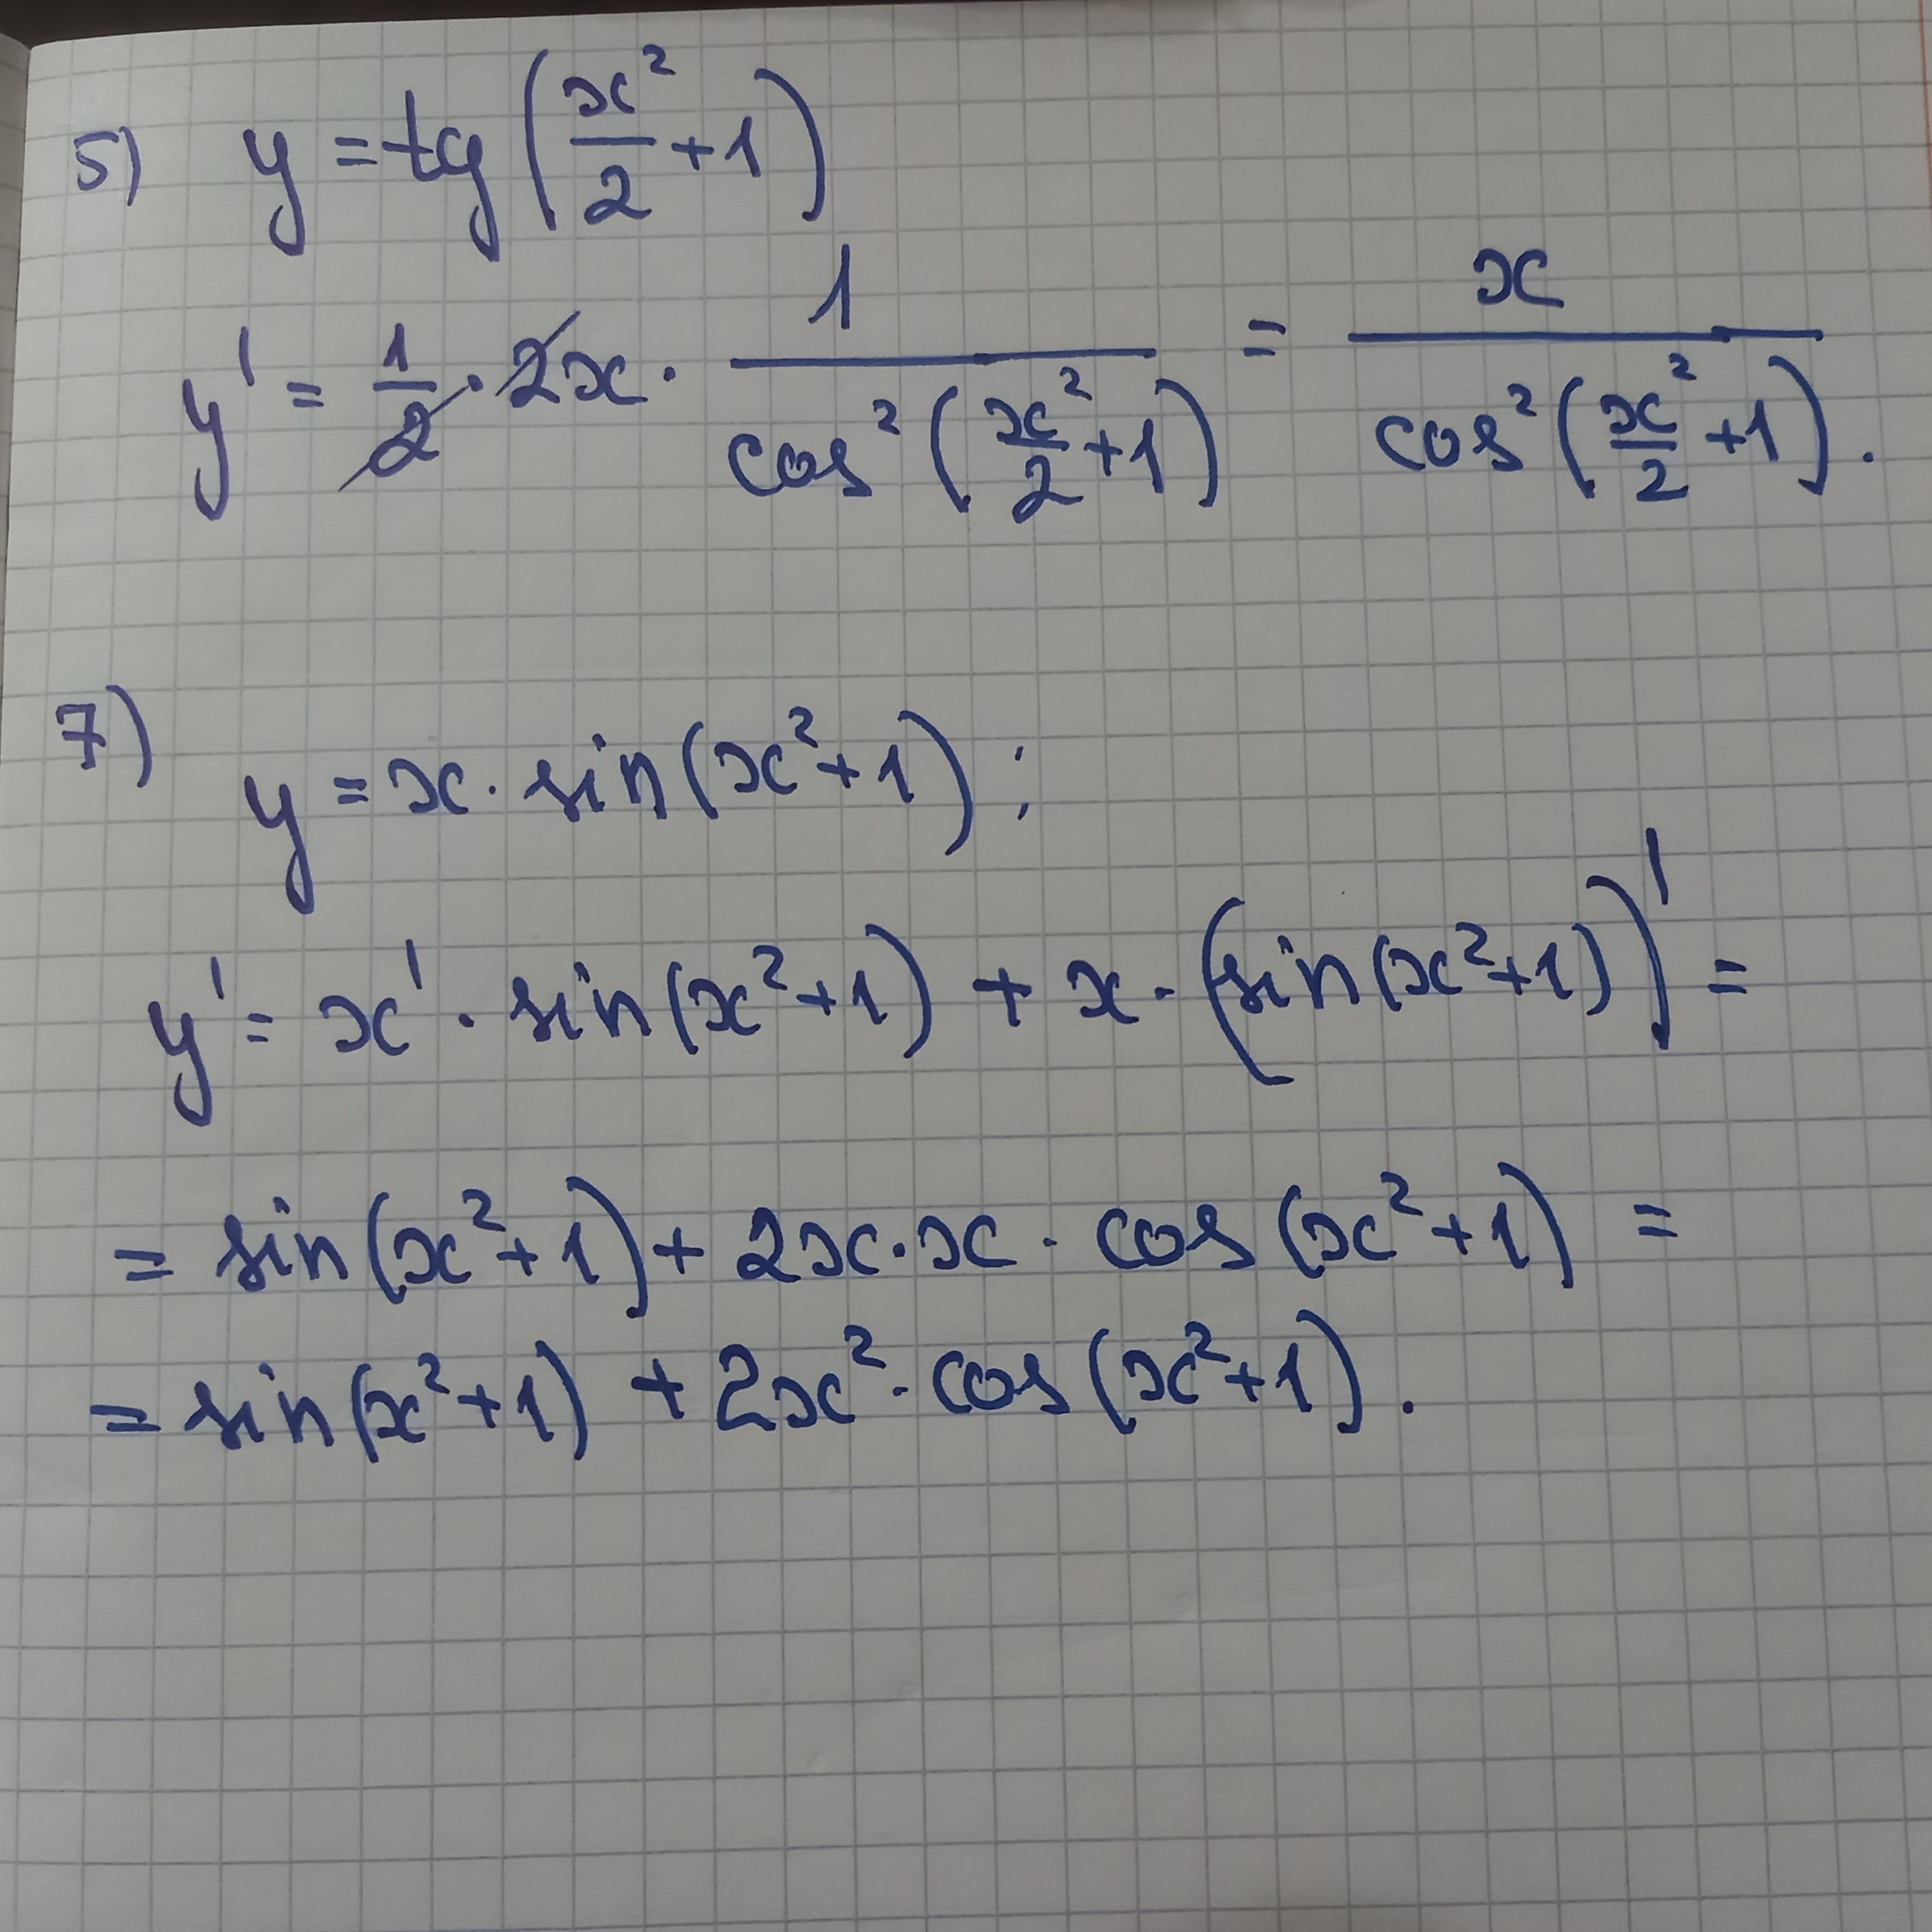 5) y = tg(x²/2 + 1)
y' = 1/2 · 2x · 1/cos²(x²/2 + 1) = x/cos²(x²/2 + 1).
7) y = x · sin(x² + 1);
y' = x' · sin(x² + 1) + x · (sin(x² + 1))' =
= sin(x² + 1) + 2x · x · cos(x² + 1) =
= sin(x² + 1) + 2x² · cos(x² + 1).